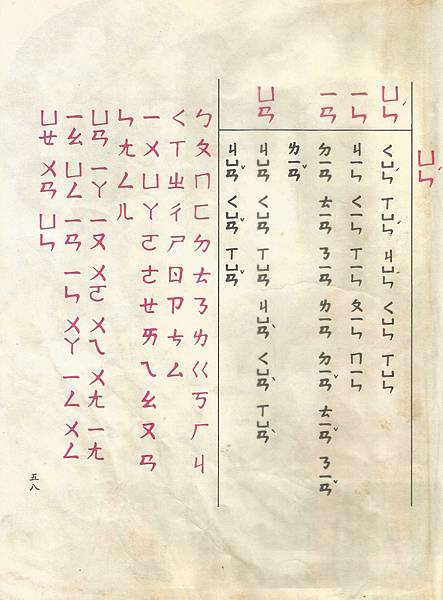 ㄩㄣˊ
ㄩㄣˊ ㄑㄩㄣˊ ㄒㄩㄣˊ ㄐㄩㄣ ㄑㄩㄣ ㄒㄩㄣ
ㄧㄣ ㄐㄧㄣ ㄑㄧㄣ ㄒㄧㄣ ㄆㄧㄣ ㄇㄧㄣ
ㄧㄢ ㄉㄧㄢ ㄊㄧㄢ ㄋㄧㄢ ㄌㄧㄢ ㄉㄧㄢˇ ㄊㄧㄢˇ ㄋㄧㄢˇ
ㄌㄧㄢˇ
ㄩㄢ ㄐㄩㄢ ㄑㄩㄢ ㄒㄩㄢ ㄐㄩㄢˋ ㄑㄩㄢˋ ㄒㄩㄢˋ
ㄐㄩㄢˇ ㄑㄩㄢˇ ㄒㄩㄢˇ
ㄅ ㄆ ㄇ ㄈ ㄉ ㄊ ㄋ ㄌ ㄍ ㄎ ㄏ ㄐ
ㄑ ㄒ ㄓ ㄔ ㄕ ㄖ ㄗ ㄘ ㄙ
ㄧ ㄨ ㄩ ㄚ ㄛ ㄜ ㄝ ㄞ ㄟ ㄠ ㄡ ㄢ
ㄣ ㄤ ㄥ ㄦ
ㄩㄢ ㄧㄚ ㄧㄡ ㄨㄛ ㄨㄟ ㄨㄤ ㄧㄤ
ㄧㄠ ㄩㄥ ㄧㄢ ㄧㄣ ㄨㄚ ㄧㄥ ㄨㄥ
ㄩㄝ ㄨㄢ ㄩㄣ
五八